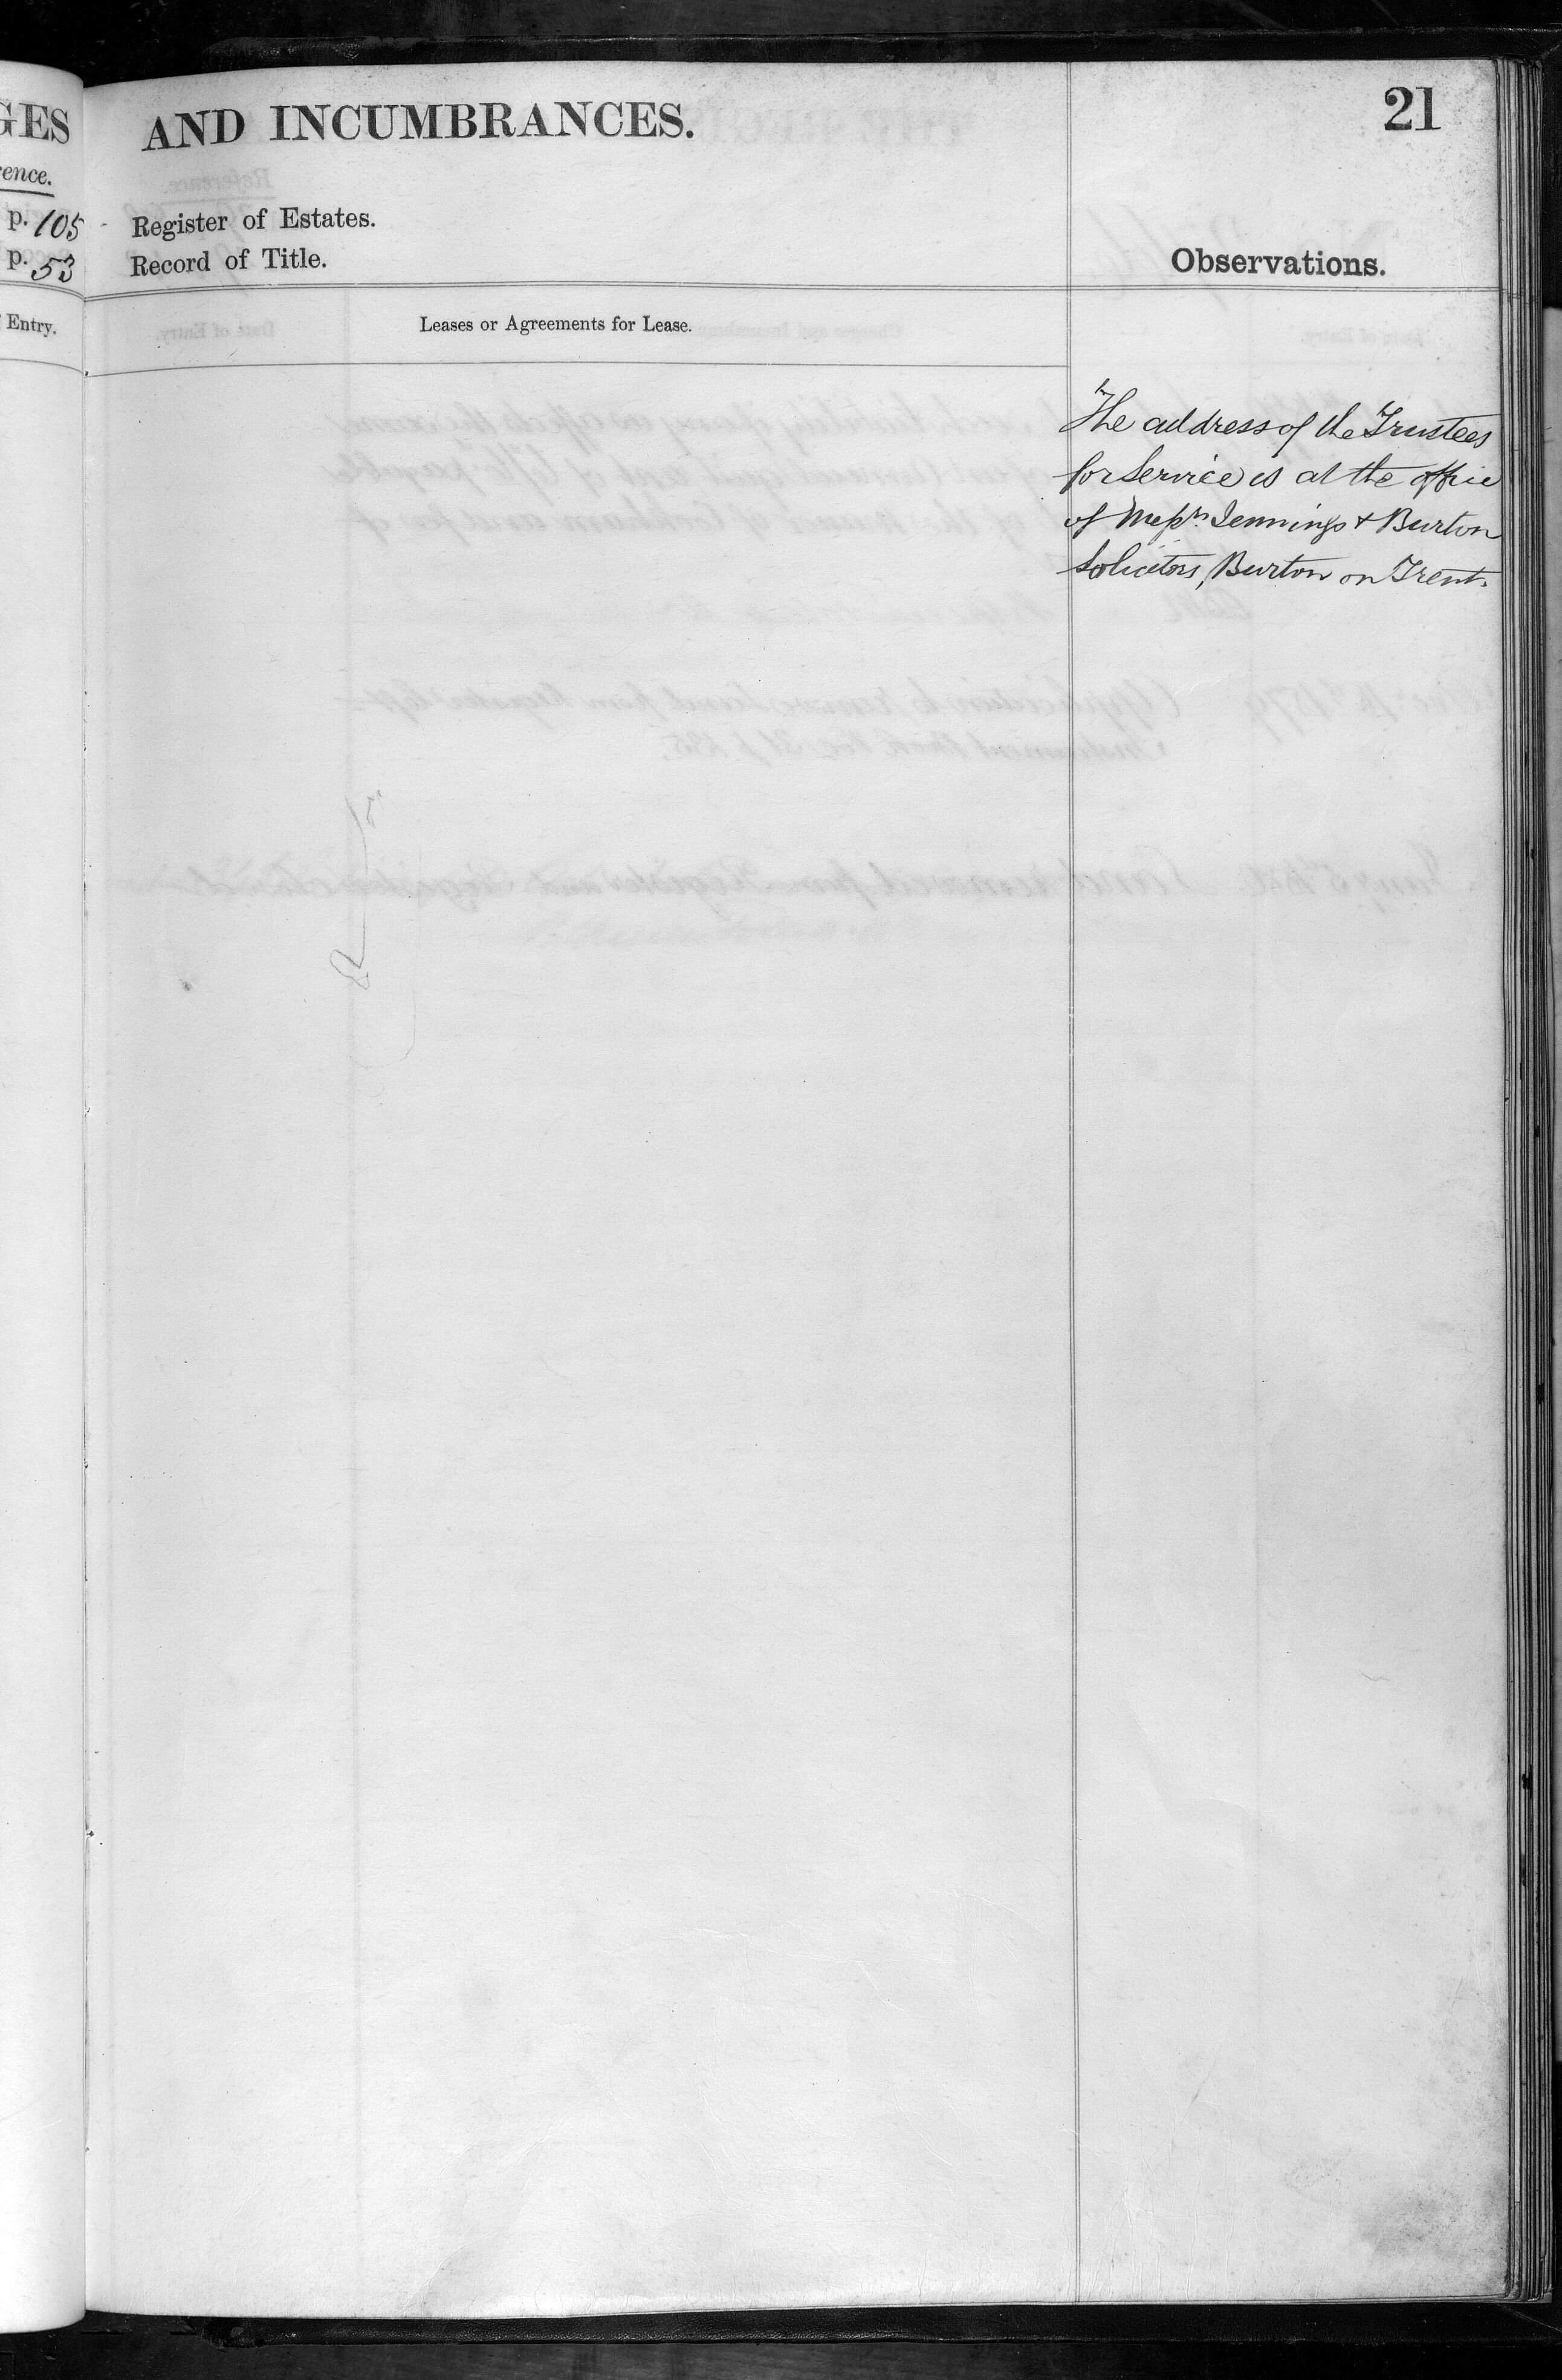 GES
AND INCUMBRANCES.
21
ence.
p. 105
Register of Estates.
p. 53
Record of Title.
Observations.
Entry.
Leases or Agreements for Lease.
The address of the Trustees
for Service is at the office
of Messrs. Jennings & Burton
Solicitors, Burton on Trent.